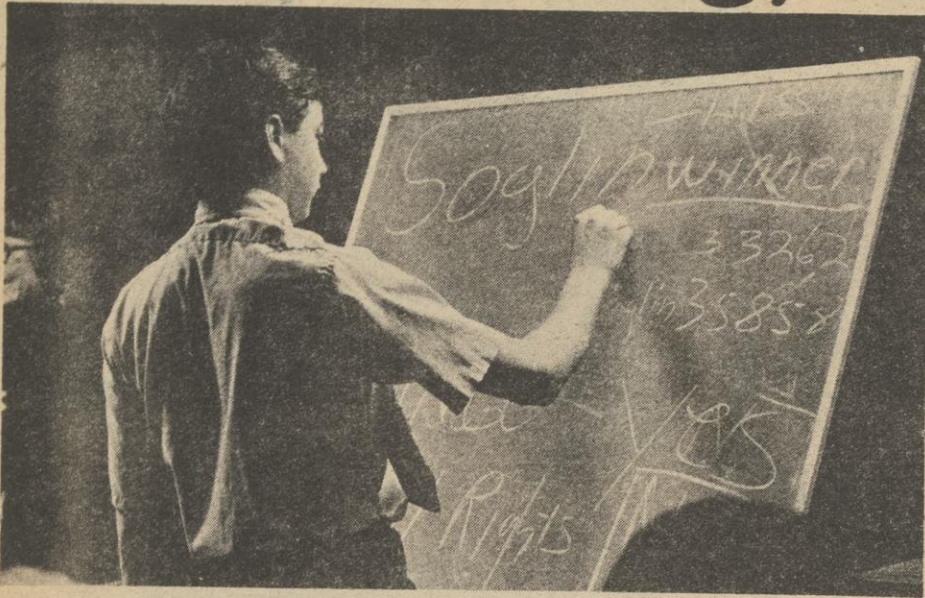 Soglin winner
33262
lin 35858
Yes
Rights